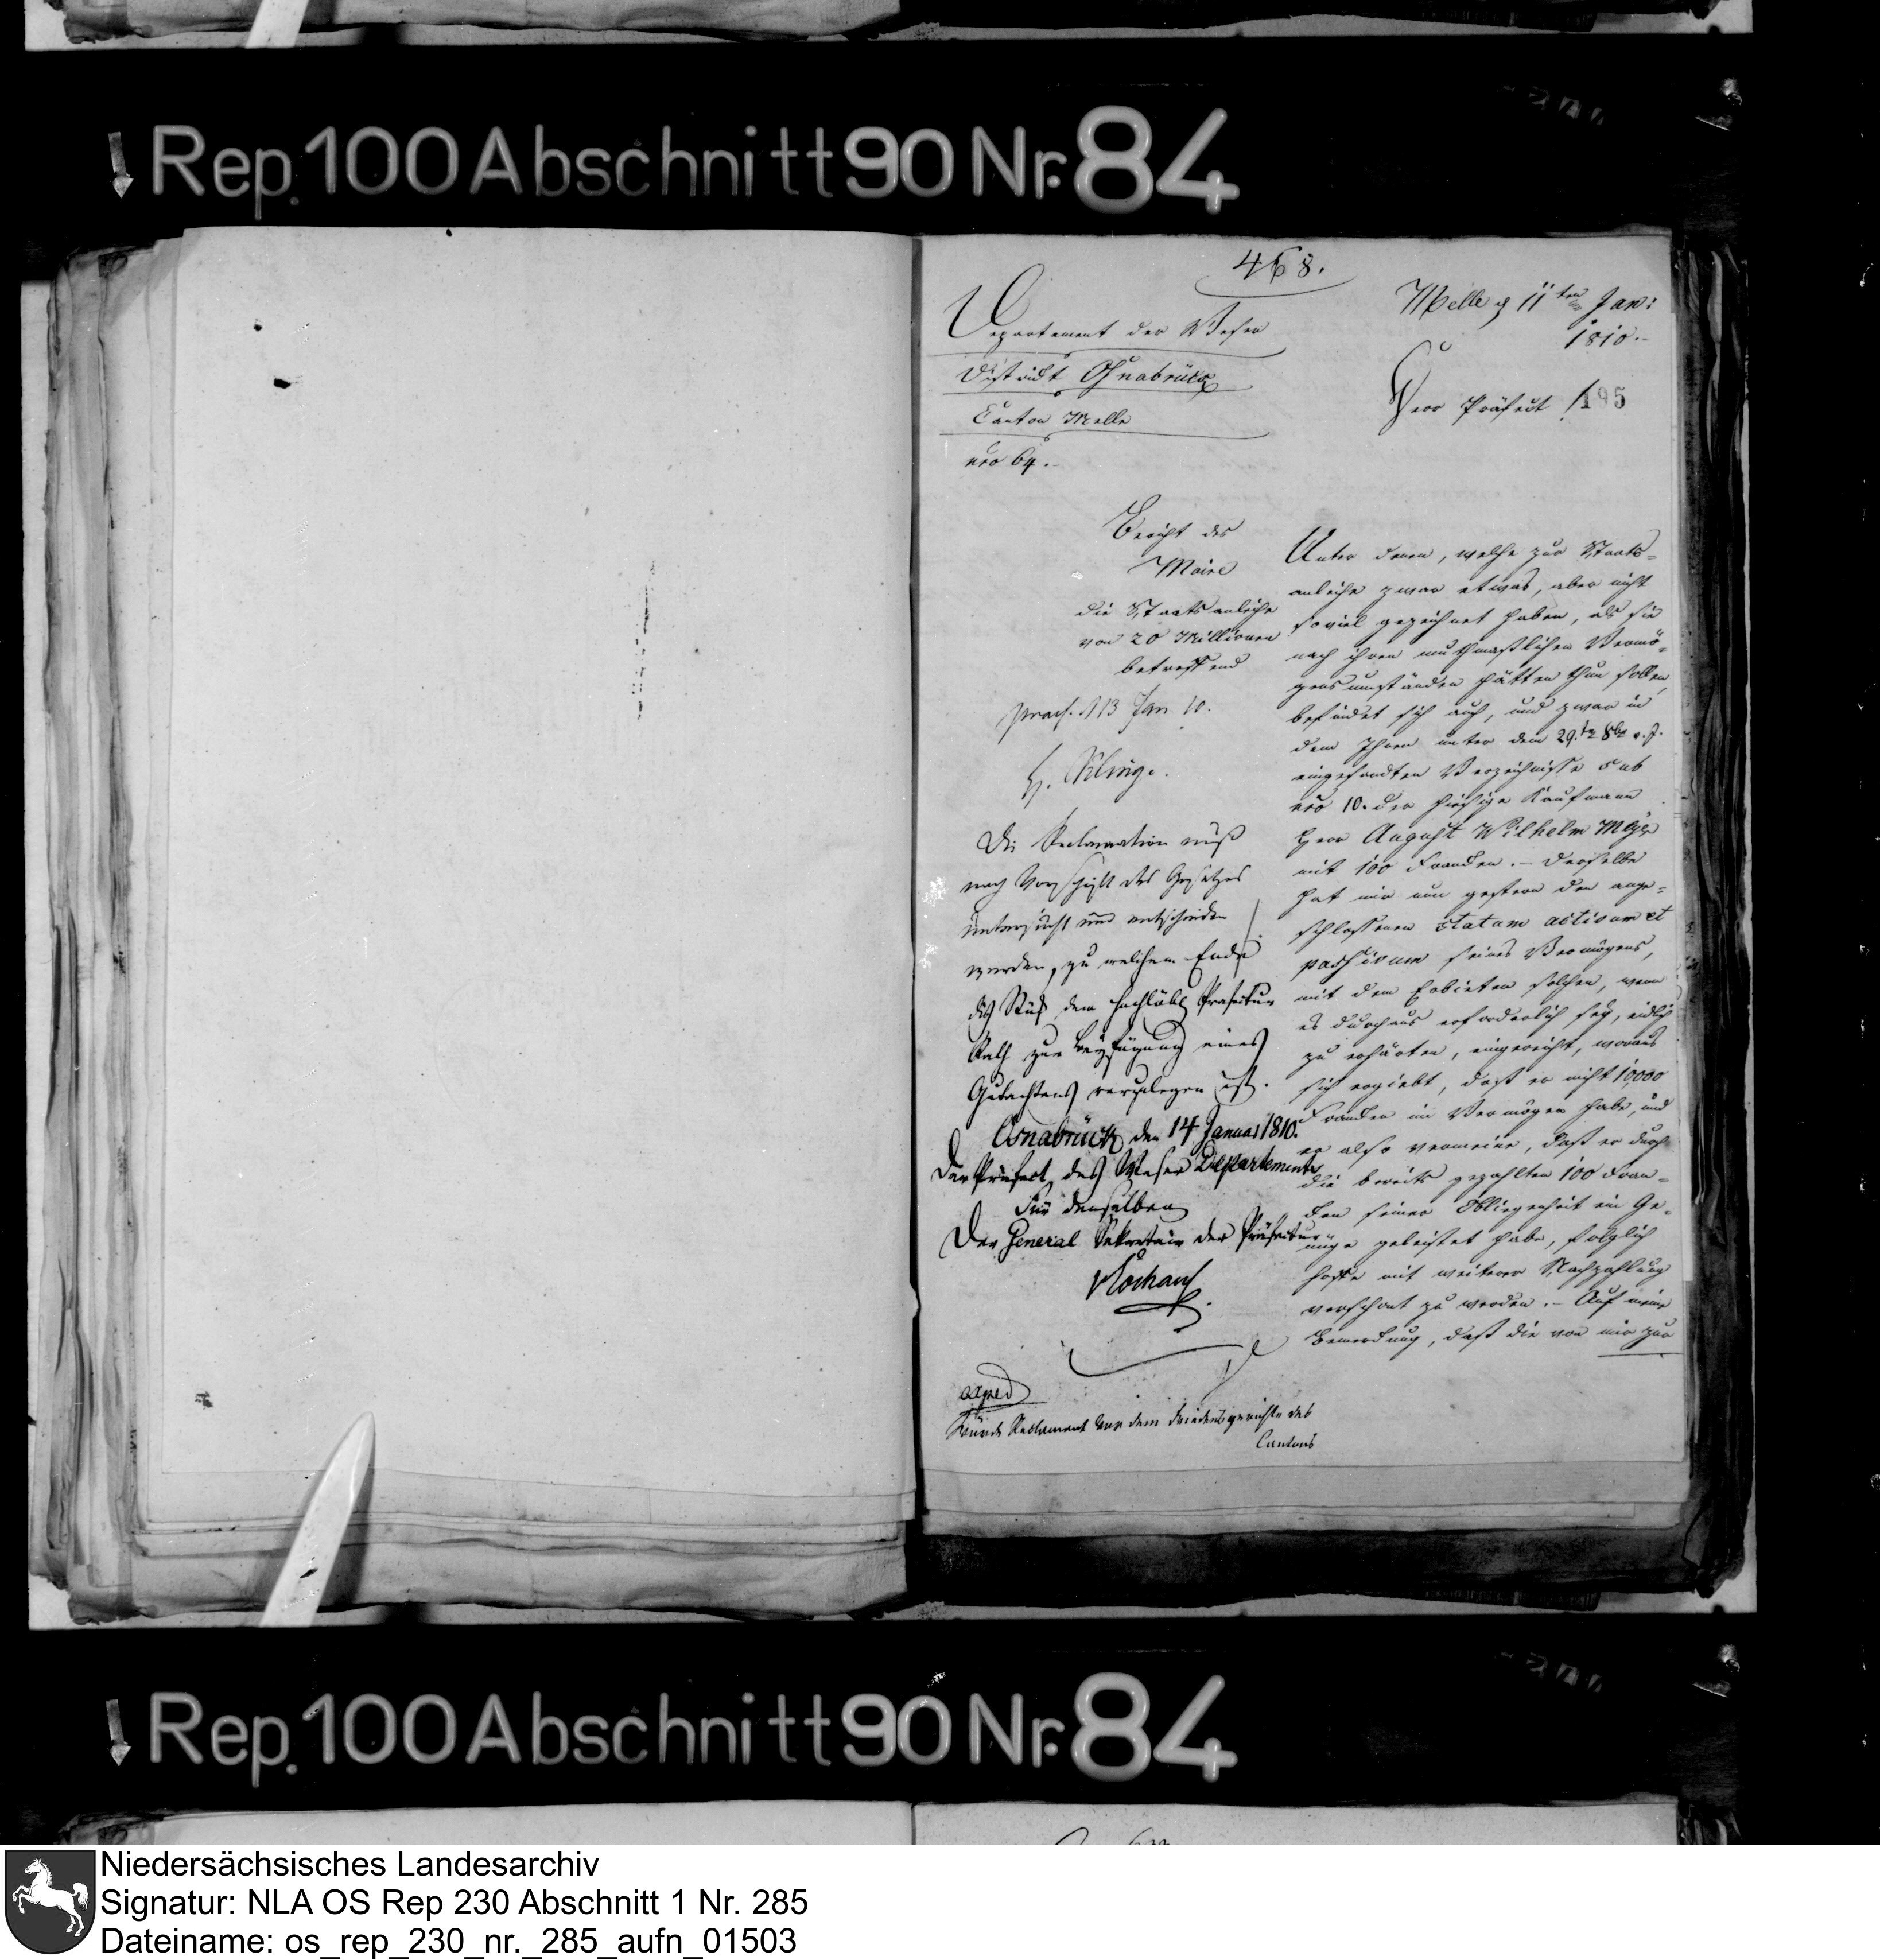 Rep. 100 Abschnitt 90 Nr. 84
468.
Departement der Weser
District Osnabrück
Canton Melle
nro 64.
Melle d 11ten Jan:
1810.
Herr Präfect!
195
Bericht des
Maire
die Staatsanleihe
von 20 Millionen
betreffend
praes. d 13 Jan 10.
Die Reclamation muß
nach Vorschrift des Gesetzes
untersucht und entschieden
werden, zu welchem Ende
dies Stück dem hochlöbl Praefectur
Rath zur Beyfügung eines
Gutachtens vorzulegen ist.
Osnabrück den 14 Januar 1810.
Der Präfect des Weser Departements
Für denselben
Der General Sekretair der Präfectur
Unter denen, welche zur Staats-
anleihe zwar etwas, aber nicht
soviel gezeichnet haben, als sie
nach ihren muthmaßlichen Vermö-
gensumständen hätten thun sollen,
befindet sich auch, und zwar in
dem Ihnen unter dem 29.ten 8br v. J.
eingesandten Verzeichnisse sub
nro 10. der hiesige Kaufmann
Herr August Wilhelm Meyer
mit 100 Franken. – Derselbe
hat mir nun gestern den ange-
schlossenen statum activum et
passivum seines Vermögens,
mit dem Erbieten solchen, wenn
es durchaus erforderlich sey, eidlich
zu erhärten, eingereicht, woraus
sich ergiebt, daß er nicht 10000
Franken im Vermögen habe, und
er also vermeine, daß er durch
die bereits gezahlten 100 Fran-
ken seiner Obliegenheit ein Ge-
nüge geleistet habe, folglich
hoffe mit weiterer Nachzahlung
verschont zu werden. – Auf meine
Bemerkung, daß die von mir zur
Würde Reclamant vor dem Friedensgerichte des
Cantons
Rep. 100 Abschnitt 90 Nr. 84
Niedersächsisches Landesarchiv
Signatur: NLA OS Rep 230 Abschnitt 1 Nr. 285
Dateiname: os_rep_230_nr._285_aufn_01503